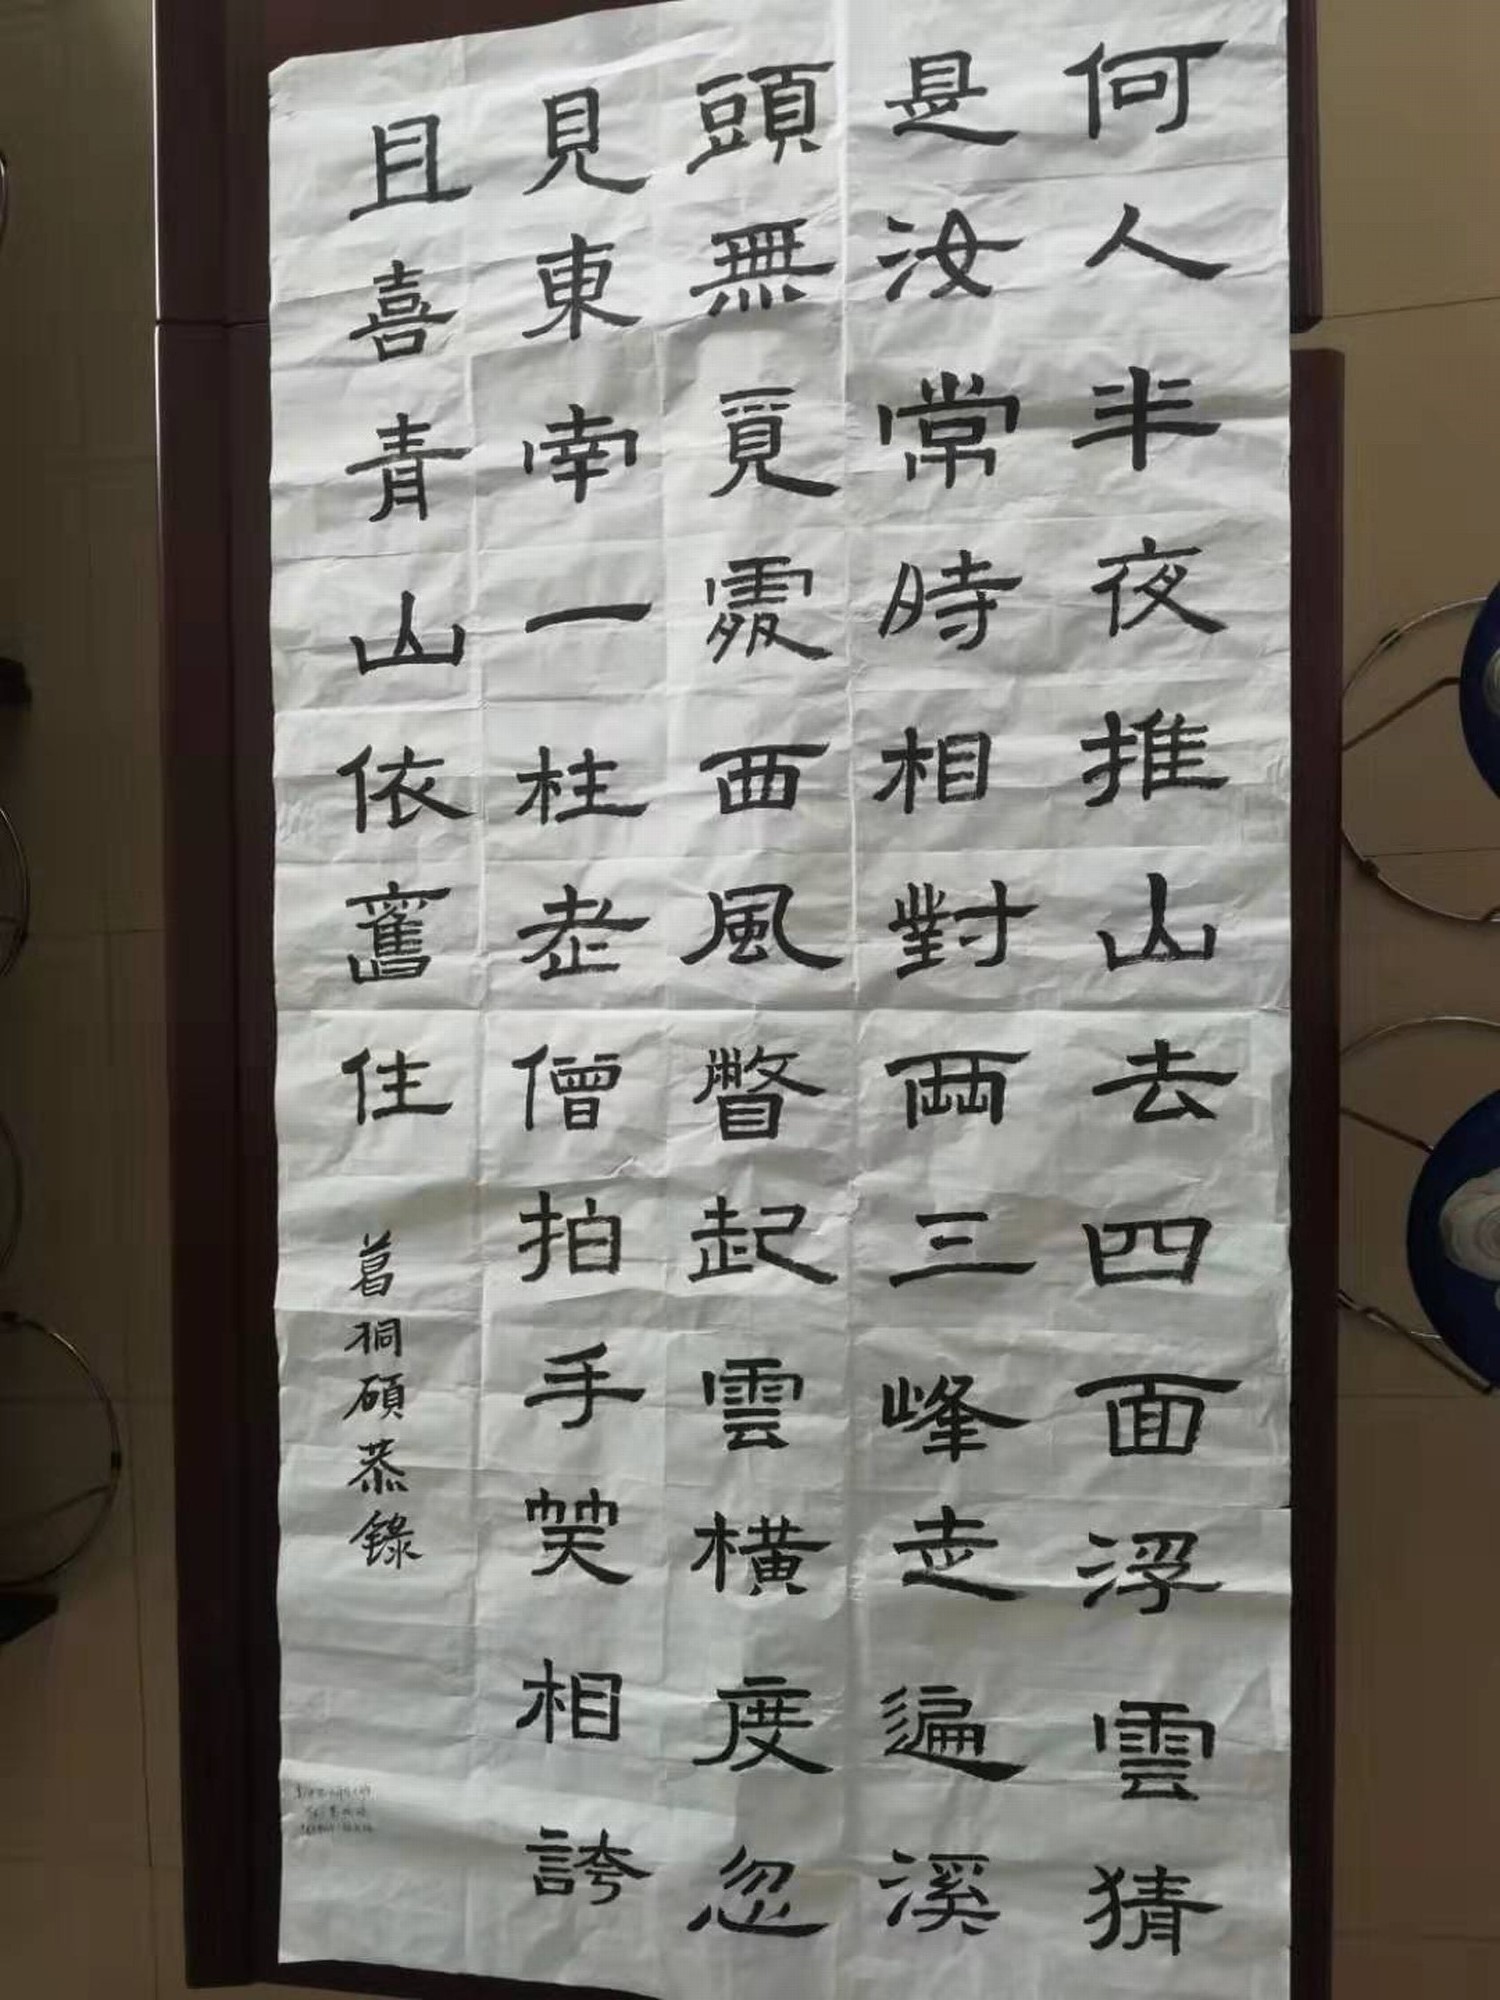 何人半夜推山去四面浮雲猜
是汝常時相對兩三峰走遍溪
頭無覓處西風瞥起雲橫度忽
見東南一柱老僧拍手笑相誇
且喜青山依舊住
葛桐碩恭錄